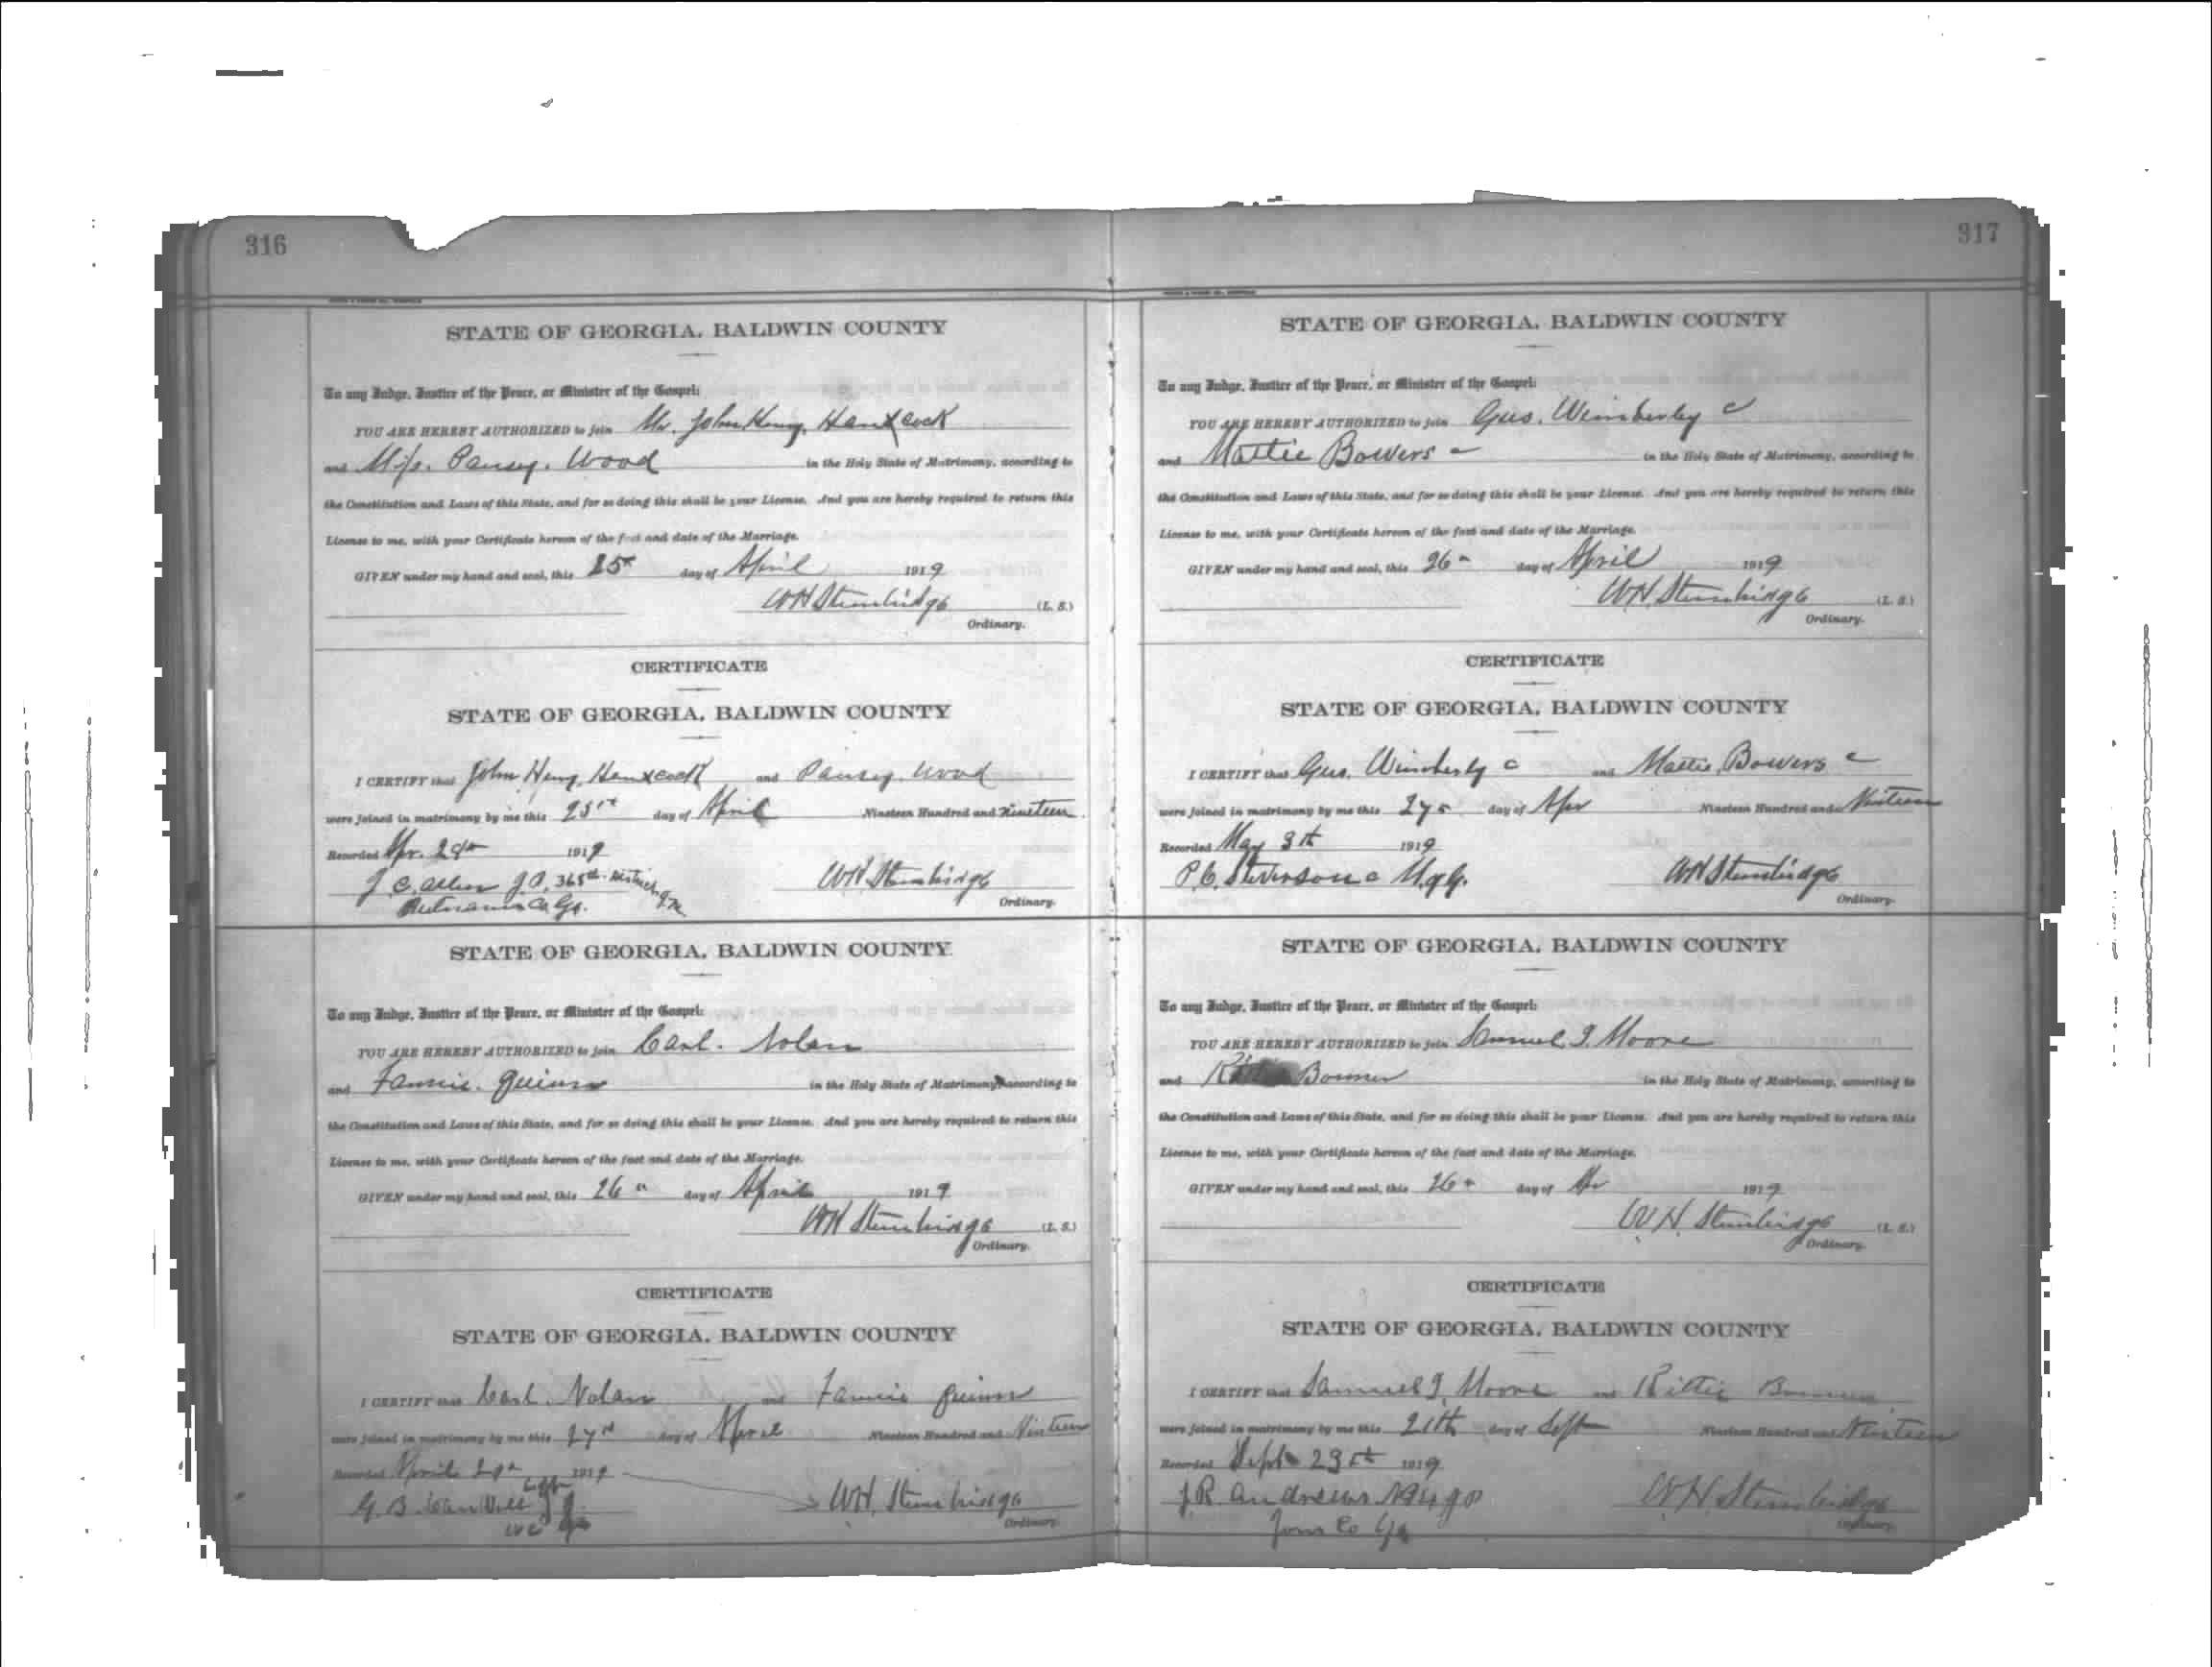 316
STATE OF GEORGIA, BALDWIN COUNTY
To any Judge, Justice of the Peace, or Minister of the Gospel:
YOU ARE HEREBY AUTHORIZED to join Mr. John Henry. Hancock
and Miss. Pansy. Wood in the Holy State of Matrimony, according to
the Constitution and Laws of this State, and for so doing this shall be your License. And you are hereby required to return this
License to me, with your Certificate hereon of the fact and date of the Marriage.
GIVEN under my hand and seal, this 25th day of April 1919
WH Stembridge (L. S.)
Ordinary.
CERTIFICATE
STATE OF GEORGIA, BALDWIN COUNTY
I CERTIFY that John Henry Hancock and Pansy. Wood
were joined in matrimony by me this 25th day of April Nineteen Hundred and Nineteen
Recorded Apr. 29th 1919
J. C. Allen J.P. 365th District G.M. WH Stembridge
Putnam Co Ga. Ordinary.
STATE OF GEORGIA, BALDWIN COUNTY
To any Judge, Justice of the Peace, or Minister of the Gospel:
YOU ARE HEREBY AUTHORIZED to join Carl. Nolan
and Fannie. Quinn in the Holy State of Matrimony, according to
the Constitution and Laws of this State, and for so doing this shall be your License. And you are hereby required to return this
License to me, with your Certificate hereon of the fact and date of the Marriage.
GIVEN under my hand and seal, this 26 day of April 1919
WH Stembridge (L. S.)
Ordinary.
CERTIFICATE
STATE OF GEORGIA, BALDWIN COUNTY
I CERTIFY that Carl. Nolan and Fannie Quinn
were joined in matrimony by me this 27 day of April Nineteen Hundred and Nineteen
Recorded April 29th 1919
G. B. WH. Stembridge
Ordinary.
317
STATE OF GEORGIA, BALDWIN COUNTY
To any Judge, Justice of the Peace, or Minister of the Gospel:
YOU ARE HEREBY AUTHORIZED to join Gus. Wimberley c
and Mattie Bowers c in the Holy State of Matrimony, according to
the Constitution and Laws of this State, and for so doing this shall be your License. And you are hereby required to return this
License to me, with your Certificate hereon of the fact and date of the Marriage.
GIVEN under my hand and seal, this 26 day of April 1919
WH. Stembridge (L. S.)
Ordinary.
CERTIFICATE
STATE OF GEORGIA, BALDWIN COUNTY
I CERTIFY that Gus. Wimberly c and Mattie. Bowers c
were joined in matrimony by me this 27 day of Apr Nineteen Hundred and Nineteen
Recorded May 3th 1919
P. C. Stevenson c M.g.G. WH Stembridge
Ordinary.
STATE OF GEORGIA, BALDWIN COUNTY
To any Judge, Justice of the Peace, or Minister of the Gospel:
YOU ARE HEREBY AUTHORIZED to join Samuel J. Moore
and Bonner in the Holy State of Matrimony, according to
the Constitution and Laws of this State, and for so doing this shall be your License. And you are hereby required to return this
License to me, with your Certificate hereon of the fact and date of the Marriage.
GIVEN under my hand and seal, this 26 day of Apr 1919
W. H. Stembridge (L. S.)
Ordinary.
CERTIFICATE
STATE OF GEORGIA, BALDWIN COUNTY
I CERTIFY that Samuel J. Moore and Kittie Bonner
were joined in matrimony by me this 21th day of Sept Nineteen Hundred and Nineteen
Recorded Sept 23th 1919
J. R. Andrews W. H Stembridge
Jones Co Ga Ordinary.